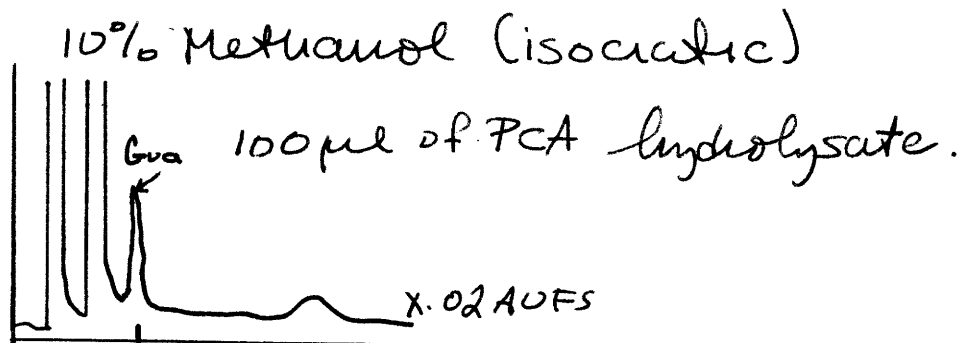 10% Methanol (isocratic)
100 µl of PCA hydrolysate.
Gua
X.02 AUFS